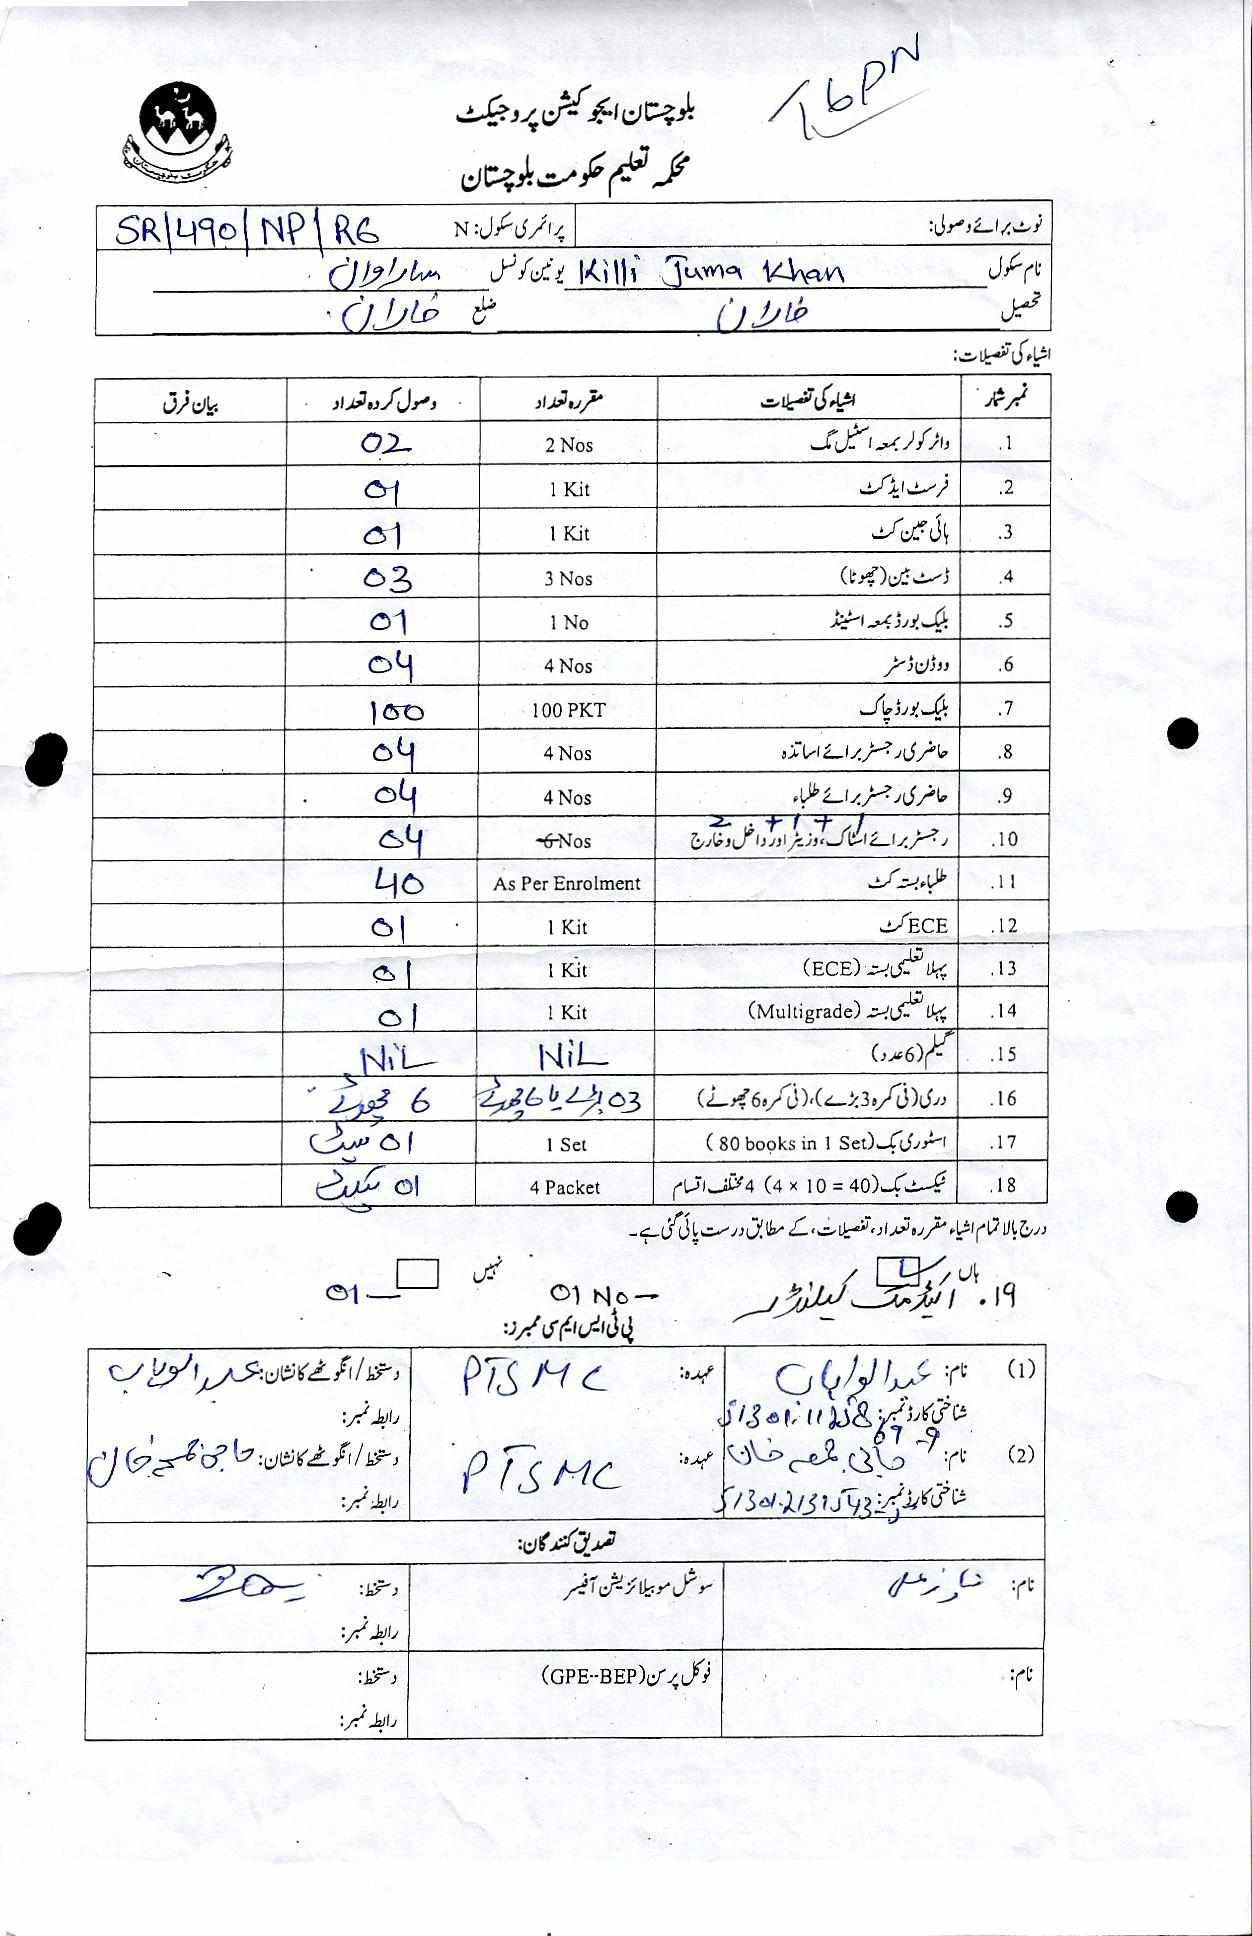 16PN
بلوچستان ایجوکیشن پروجیکٹ
محکمہ تعلیم حکومت بلوچستان
حکومت بلوچستان
نوٹ برائے وصولی: پرائمری سکول: N SR/490/NP/RG
نام سکول Killi Juma Khan یونین کونسل ساراوان
تحصیل خاران ضلع خاران
اشیاء کی تفصیلات:
نمبر شمار اشیاء کی تفصیلات مقررہ تعداد وصول کردہ تعداد بیان فرق
1. واٹر کولر بمعہ اسٹیل مگ 2 Nos 02
2. فرسٹ ایڈ کٹ 1 Kit 01
3. ہائی جین کٹ 1 Kit 01
4. ڈسٹ بین (چھوٹا) 3 Nos 03
5. بلیک بورڈ بمعہ اسٹینڈ 1 No 01
6. ووڈن ڈسٹر 4 Nos 04
7. بلیک بورڈ چاک 100 PKT 100
8. حاضری رجسٹر برائے اساتذہ 4 Nos 04
9. حاضری رجسٹر برائے طلباء 4 Nos 04
2 + 1 + 1
10. رجسٹر برائے اسٹاک، وزیٹر اور داخل و خارج 6 Nos 04
11. طلباء بستہ کٹ As Per Enrolment 40
12. ECE کٹ 1 Kit 01
13. پہلا تعلیمی بستہ (ECE) 1 Kit 01
14. پہلا تعلیمی بستہ (Multigrade) 1 Kit 01
15. گیلم (6 عدد) NiL NiL
16. دری (فی کمرہ 3 بڑے)، (فی کمرہ 6 چھوٹے) 03 بڑے یا 6 چھوٹے 6 چھوٹے
17. اسٹوری بک (80 books in 1 Set) 1 Set 01 سیٹ
18. ٹیکسٹ بک (4 × 10 = 40) 4 مختلف اقسام 4 Packet 01
درج بالا تمام اشیاء مقررہ تعداد، تفصیلات، کے مطابق درست پائی گئی ہے۔
ہاں نہیں
۱۹. اکیڈمک کیلنڈر 01 No — 01
پی ٹی ایس ایم سی ممبرز:
(1) نام: عبدالوہاب عہدہ: PTSMC دستخط / انگوٹھے کا نشان: عبدالوہاب
شناختی کارڈ نمبر: رابطہ نمبر:
(2) نام: حاجی جمعہ خان عہدہ: PTSMC دستخط / انگوٹھے کا نشان: حاجی جمعہ خان
شناختی کارڈ نمبر: رابطہ نمبر:
تصدیق کنندگان:
نام: سوشل موبیلائزیشن آفیسر دستخط:
رابطہ نمبر:
نام: فوکل پرسن (GPE--BEP) دستخط:
رابطہ نمبر: